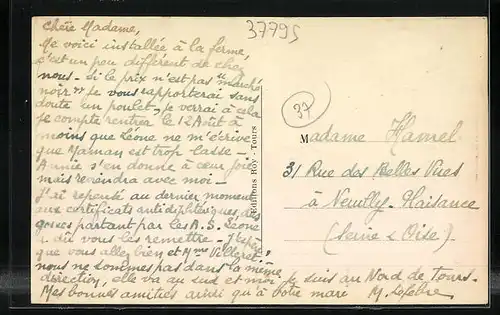 37795
Chère Madame,
Me voici installée à la ferme,
c'est un peu différent de chez
nous - Si le prix n'est pas "marché
noir" je vous rapporterai sans
doute un poulet. Je verrai à cela
je compte rentrer le 12 Août à
moins que Léone ne m'écrive
que Maman est trop lasse -
Annie s'en donne à cœur joie
mais reviendra avec moi -
J'ai repensé au dernier moment
aux certificats antidiphtériques des
gosses partant par les A.S. Léone
a dû vous les remettre - J'espère
que vous allez bien et Mme
nous ne sommes pas dans la même
direction, elle va au sud et moi je suis au Nord de Tours -
Mes bonnes amitiés ainsi qu'à votre mari M. Lefebre
Editions Roy - Tours
37
Madame Hamel
31 Rue des Belles Vues
à Neuilly-Plaisance
(Seine & Oise)